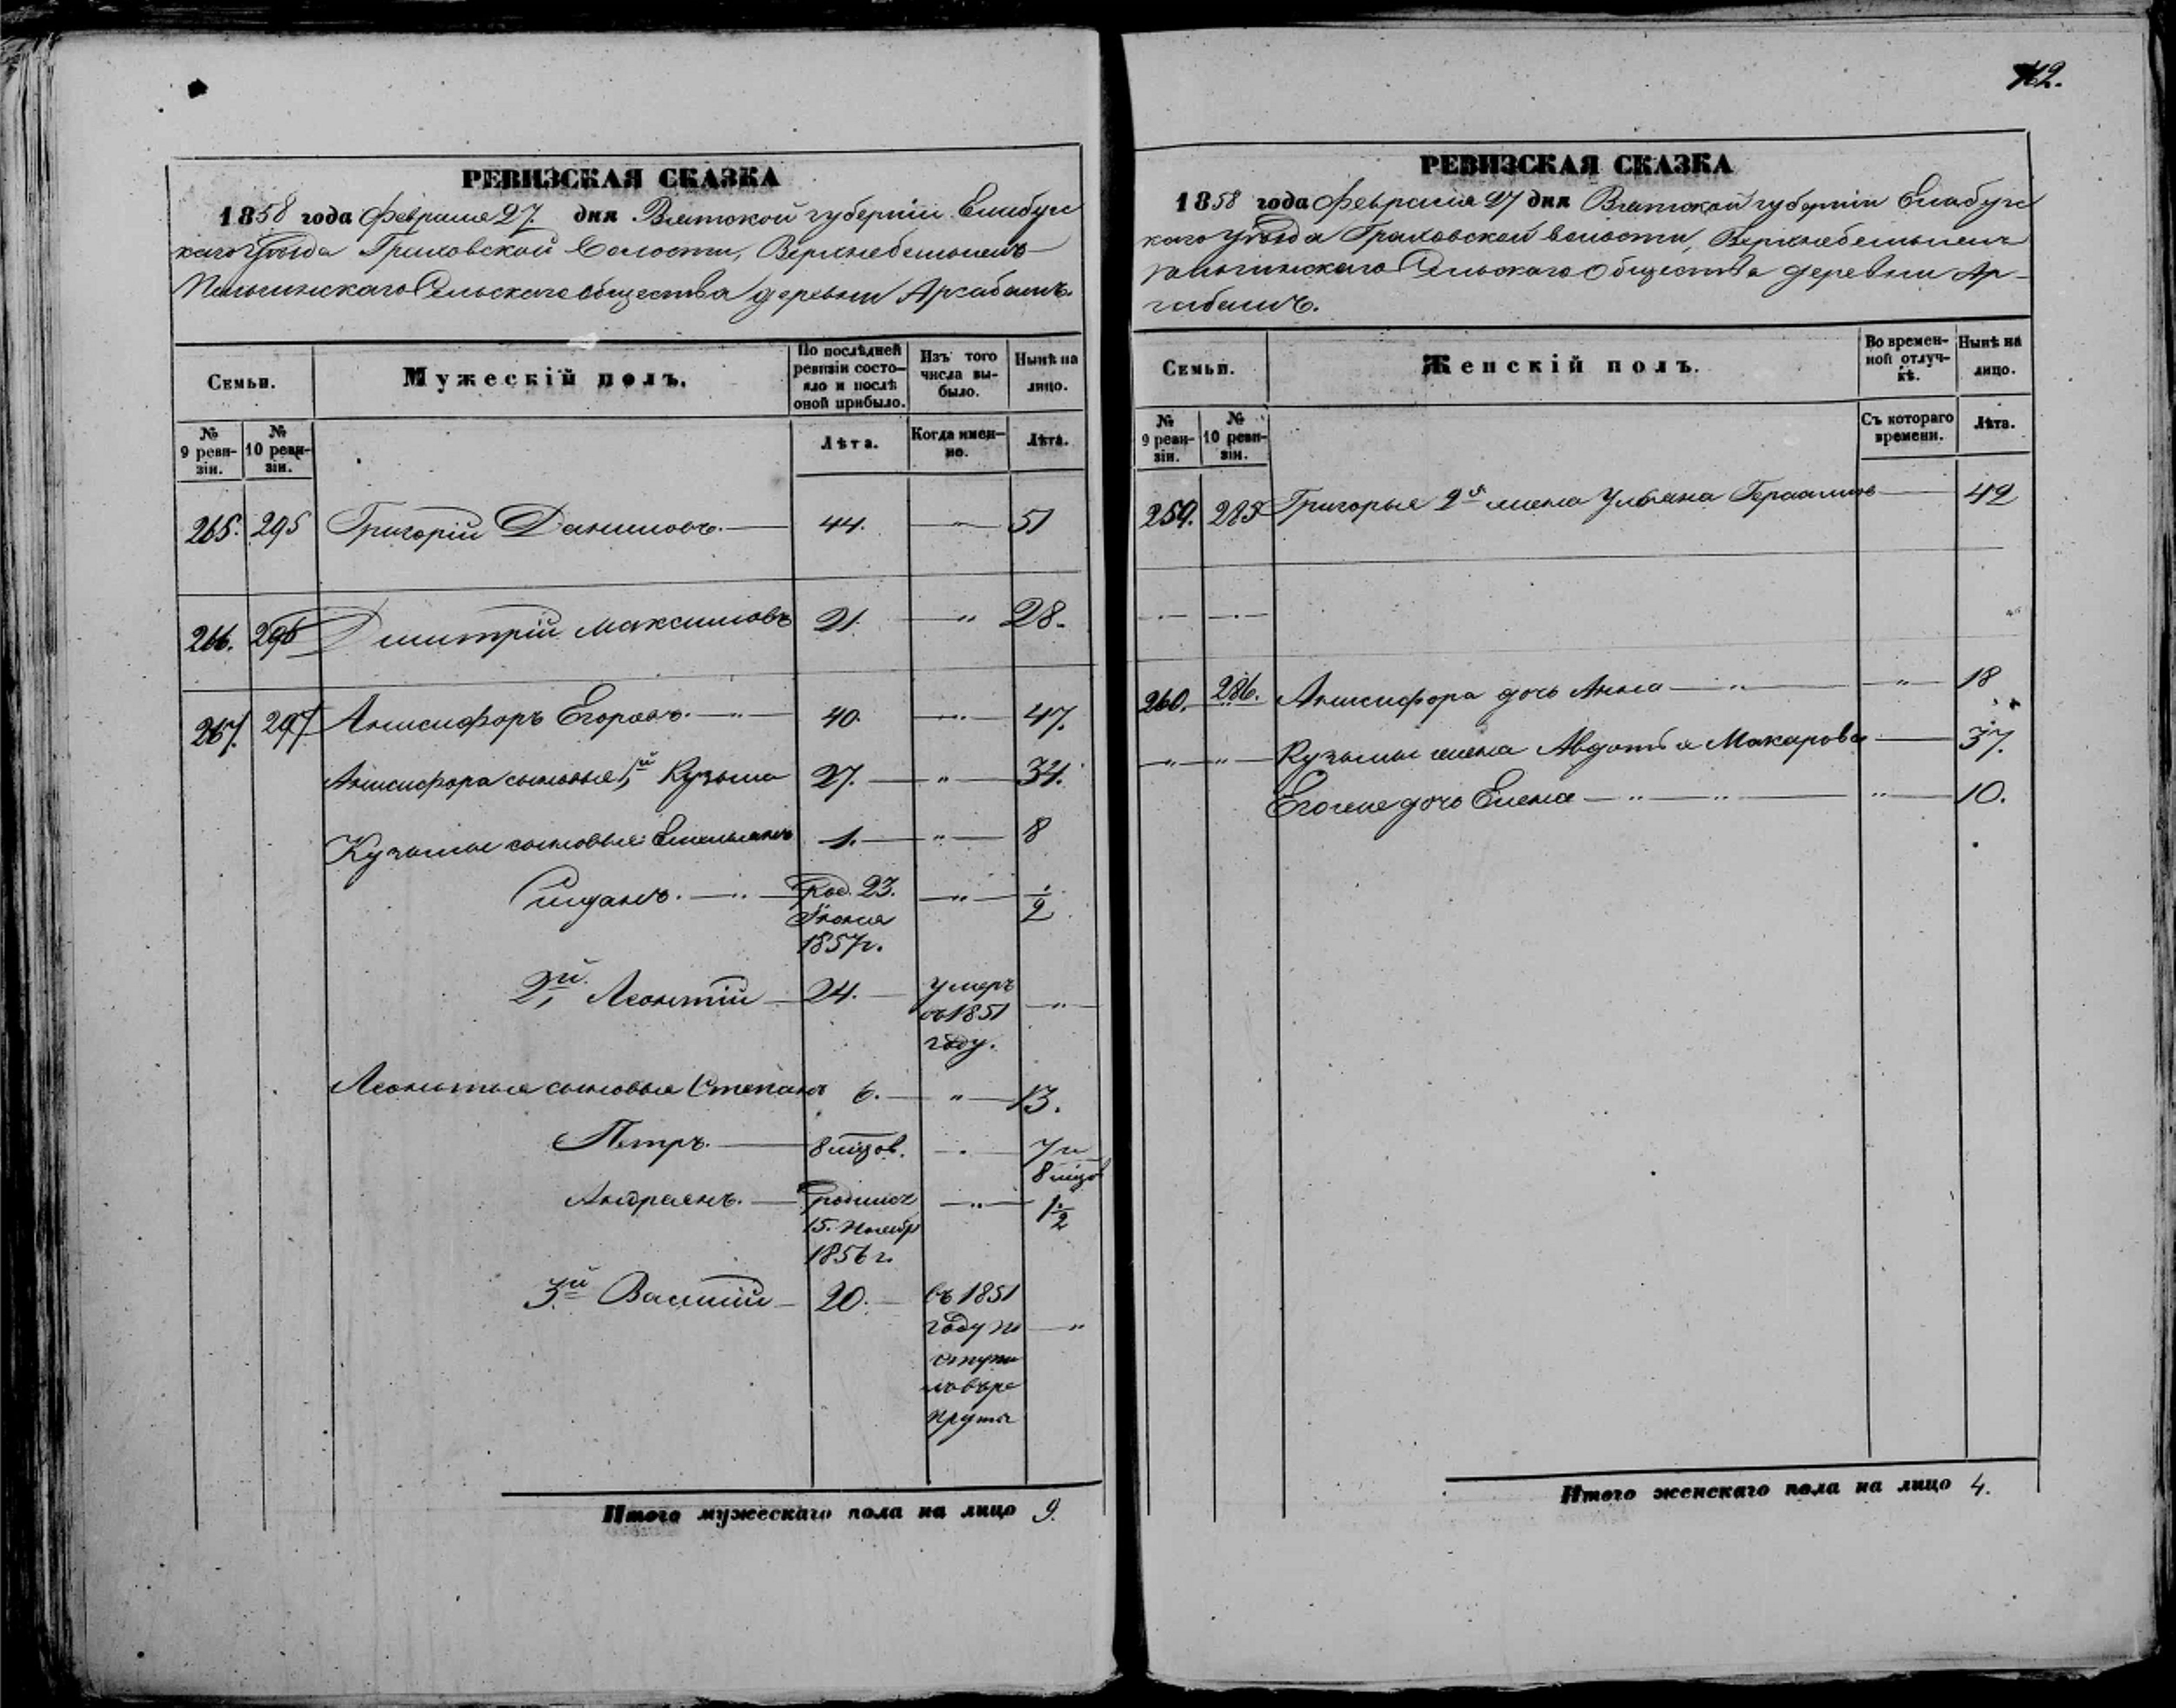 РЕВИЗСКАЯ СКАЗКА
1858 года Февраля 27 дня Вятской губерніи Елабуж
каго Уѣзда Граховской Волости,
Сельскаго общества деревни
Семьи. Мужескій полъ. По послѣдней ревизіи состояло и послѣ оной прибыло. Изъ того числа выбыло. Нынѣ на лицо.
№ 9 ревизіи. № 10 ревизіи. Лѣта. Когда именно. Лѣта.
265. 295 Григорій Даниловъ. — 44. — " — 51
266. 296 Дмитрій Максимовъ 21. — " 28.
267. 297 Анисифоръ Егоровъ. — " — 40. — " — 47.
Анисифора сыновья 1й Кузьма 27. — " — 34.
Кузьмы сыновья: Емельянъ 1. — " — 8
— " — Род. 23. — " — 1/2
Іюня
1857 г.
2й Леонтій — 24. — умеръ — " —
въ 1851
году.
Леонтья сыновья Степанъ 6. — " — 13.
Петръ. — 8 мѣцов. — " — 7 и
8 мѣцов
Андреянъ. — родился — " — 1 1/2
15. Ноябр
1856 г.
3й Василій — 20. — Въ 1851
году по — "
ступи
лъ въ ре
круты
Итого мужескаго пола на лицо 9.
112.
РЕВИЗСКАЯ СКАЗКА
1858 года Февраля 27 дня Вятской губерніи Елабуж
каго Уѣзда Граховской волости,
Сельскаго Общества деревни Ар-
Семьи. Женскій полъ. Во временной отлучкѣ. Нынѣ на лицо.
№ 9 ревизіи. № 10 ревизіи. Съ котораго времени. Лѣта.
259. 285 Григорья 2я жена Ульяна Герасимов — 42
— " — — " —
260. 286. Анисифора дочь Анна — " — — " — 18
— " — " — Кузьмы жена Авдотья Макарова — 37.
Егоже дочь Елена — " — " — " — 10.
Итого женскаго пола на лицо 4.